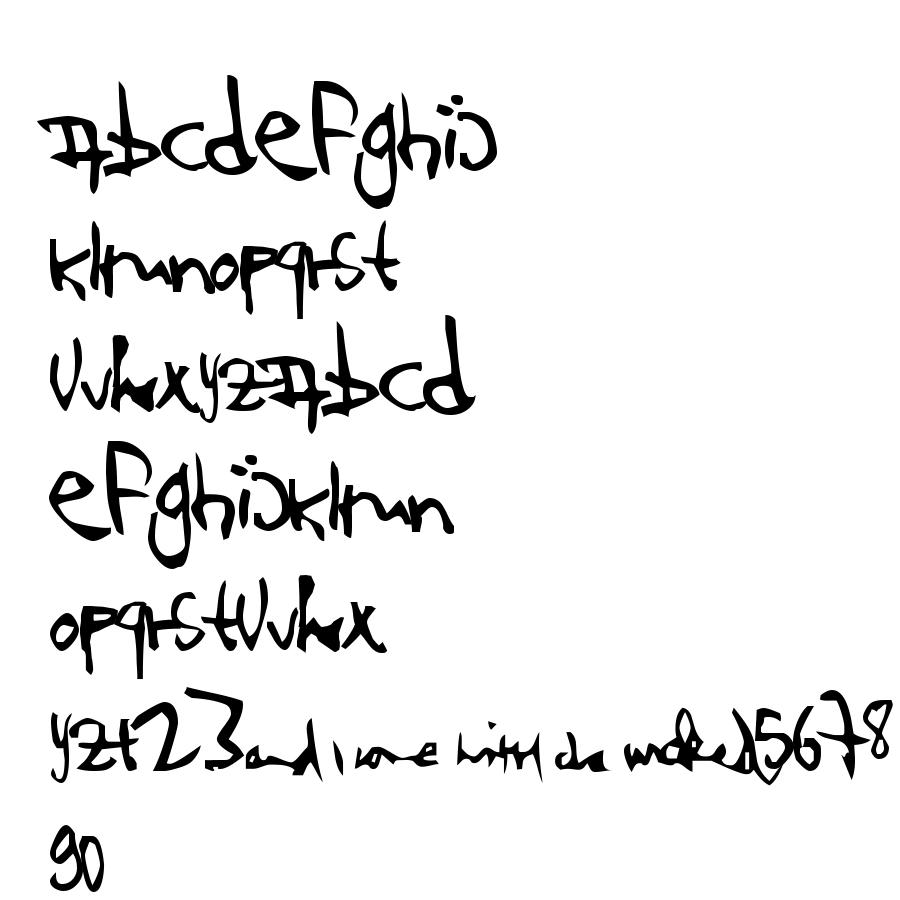 AbcdeFghij
klmnopqrst
UvwxyzAbcd
eFghijklmn
opqrstUvwx
yzt23and i come with 5678
90